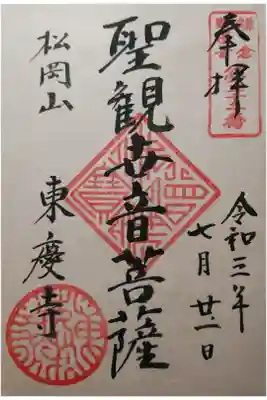 奉拝
令和三年
七月廿一日
聖観世音菩薩
松岡山
東慶寺